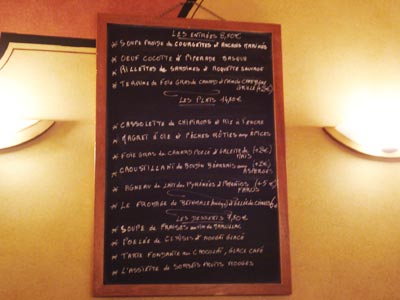 LES ENTRÉES 8,50€
* SOUPE FROIDE DE COURGETTES ET ANCHOIS MARINÉS
* OEUF COCOTTE ET PIPERADE BASQUE
* RILLETTES DE SARDINES ET ROQUETTE SAUVAGE
* TERRINE DE FOIE GRAS DE CANARD ET
LES PLATS
* CASSOLETTE DE CHIPIRONS ET RIZ À L'ENCRE
* MAGRET D'OIE ET PÊCHES RÔTIES AUX ÉPICES
* FOIE GRAS DE CANARD POÊLÉ ET GALETTE DE MAÏS
* CROUSTILLANT DE BOUDIN BÉARNAIS AUX ASPERGES
* AGNEAU DE LAIT DES PYRÉNÉES ET FARCIS (+5 €)
* LE FROMAGE DE
LES DESSERTS
* SOUPE DE FRAISES AU VIN DE
* POÊLÉE DE CERISES ET NOUGAT GLACÉ
* TARTE FONDANTE AU CHOCOLAT, GLACE CAFÉ
* L'ASSIETTE DE SORBETS FRUITS ROUGES